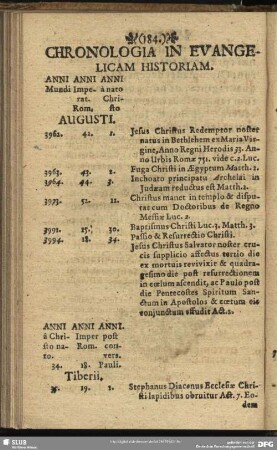 (184.)
CHRONOLOGIA IN EVANGE-
LICAM HISTORIAM.
ANNI ANNI ANNI
Mundi Impe- à nato
rat. Chri-
Rom. sto
AUGUSTI.
3962. 42. 1. Jesus Christus Redemptor noster
natus in Bethlehem ex Maria Vir-
gine, Anno Regni Herodis 33. An-
no Urbis Romæ 751. vide c. 2. Luc.
3963. 43. 2. Fuga Christi in Ægyptum Matth. 2.
3964. 44. 3. Inchoato principatu Archelai in
Judæam reductus est Matth. 2.
3973. 52. 12. Christus manet in templo & dispu-
tat cum Doctoribus de Regno
Messiæ Luc. 2.
3991. 15. 30. Baptismus Christi Luc. 3. Matth. 3.
3994. 18. 34. Passio & Resurrectio Christi.
Jesus Christus Salvator noster cru-
cis supplicio affectus tertio die
ex mortuis revivixit & quadra-
gesimo die post resurrectionem
in cœlum ascendit, ac Paulo post
die Pentecostes Spiritum San-
ctum in Apostolos & cœtum eis
conjunctum effudit Act. 2.
ANNI ANNI ANNI.
à Chri- Imper post
sto na- Rom. con-
to. vers.
34. 18. Pauli.
Tiberii.
19. 1. Stephanus Diaconus Ecclesiæ Chri-
sti lapidibus obruitur Act. 7. Eo-
dem